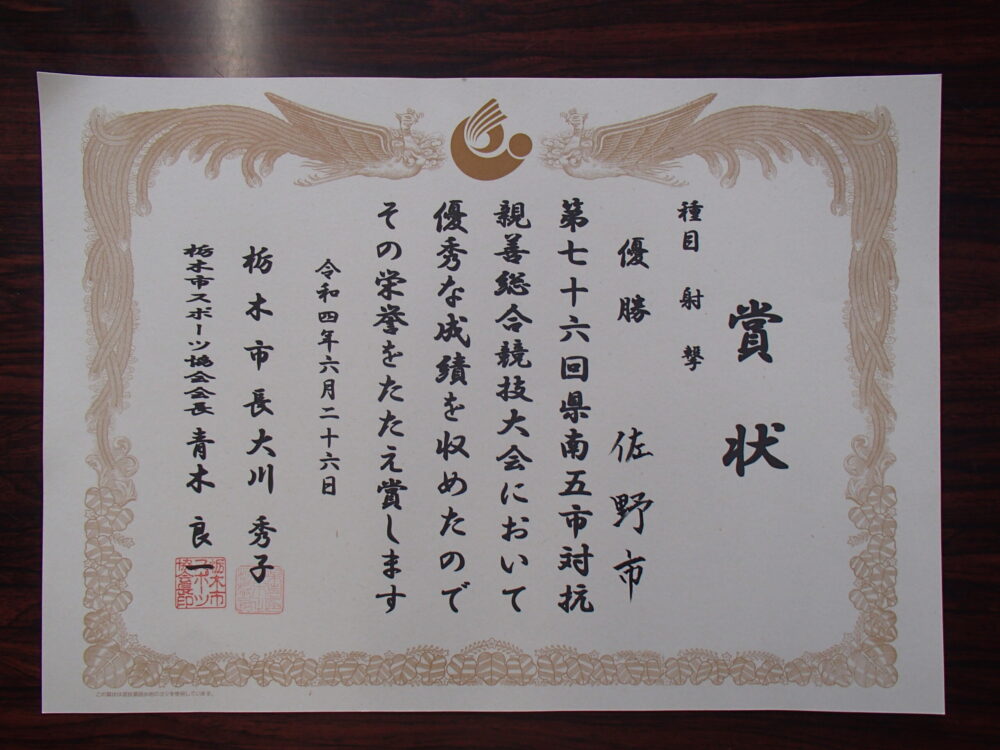 賞状
種目 射撃
優勝 佐野市
第七十六回県南五市対抗
親善総合競技大会において
優秀な成績を収めたので
その栄誉をたたえ賞します
令和四年六月二十六日
栃木市長大川秀子
栃木市スポーツ協会会長 青木良一
栃木市
スポーツ
協会長印